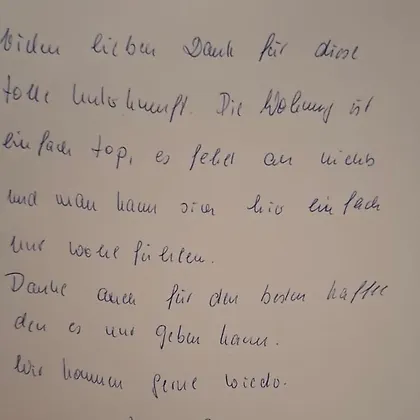 Vielen lieben Dank für diese
tolle Unterkunft. Die Wohnung ist
einfach top, es fehlt an nichts
und man kann sich hier einfach
nur wohl fühlen.
Danke auch für den besten Kaffee
den es nur geben kann.
Wir kommen gerne wieder.